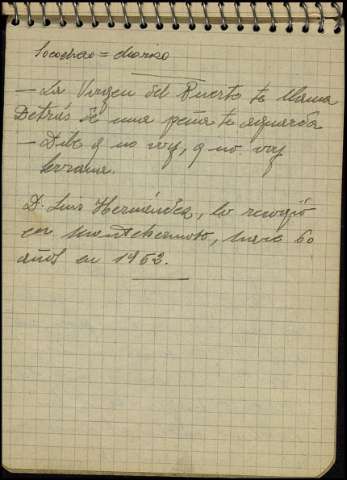 = chorizo
— La Virgen del Puerto te llama
Detrás de una peña te aguarda
— Dile q no voy, q no voy
serrana.
D. Luis Hernández, lo recogió
en Montehermoso, hace 60
años en 1963.